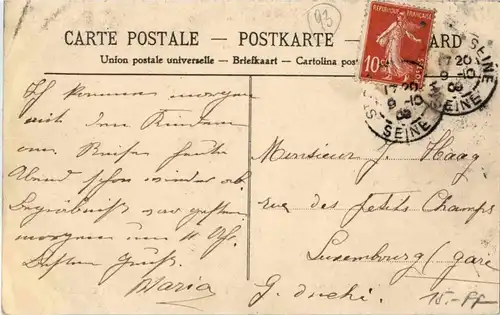 93
CARTE POSTALE – POSTKARTE – ARD
Union postale universelle – Briefkaart – Cartolina post
REPUBLIQUE FRANÇAISE
10
SEINE
17 20
9 - 10
SEINE
17 20
9 - 10
SEINE
Ich komme morgen
mit den Kindern
Reise heute
Abend schon wieder ab.
Begräbniß war gestern
morgen um 11 Uhr.
Besten Gruß.
Maria
Monsieur J. Haag
rue des petits Champs
Luxembourg (gare)
G. duché.
15.-